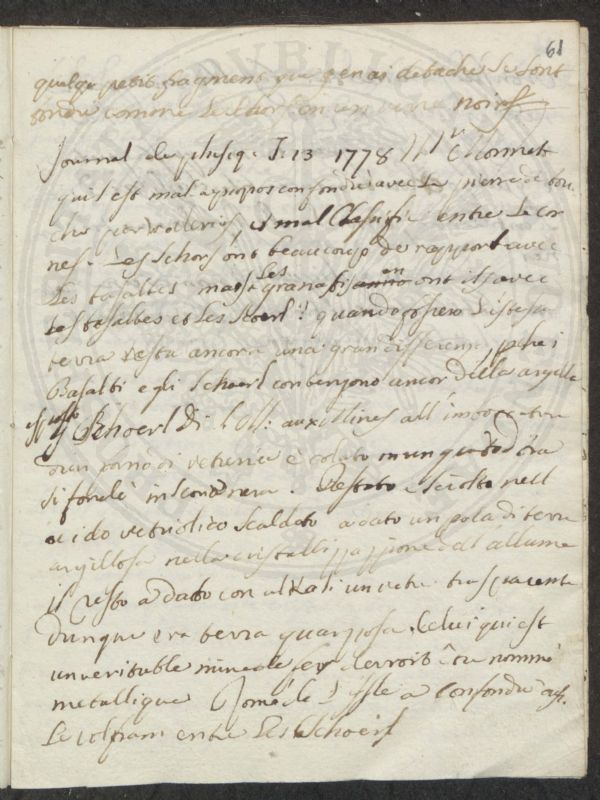 61
quelque petit fragment que j'en ai detaché se sont
fondu comme le schorl en un verre noir
Journal de physiq. T. 13 1778 Mr
qu'il est mal apropos confondu avec la pierre de tou
che par wallerius, et mal Classifié entre le cor
nes. Les Schorl ont beaucoup de rapport avec
Les basaltes mais Les granats en ont ils avec
les basaltes et les scoerl? quando fossero l'istessa
terra resta ancora una gran differenza, poiche i
Basalti e gli schoerl contengono ancor della argilla
esposto
il Schoerl di aux all' imboccatura
d'un forno di vetreria è colato in un quarto d'ora
si fonde in scoria nera. Pestato e sciolto nell
acido vetriolico scaldato a dato un po la di terra
argillosa nella cristallizzazzione dell allume
il resto a dato con alkali un vetro trasparente
dunque era terra quarzosa. Celui qui est
un veritable minerale fer devroit être nommé
metallique Romé de l'Isle a confondu
Le volfram entre Les Schoerl